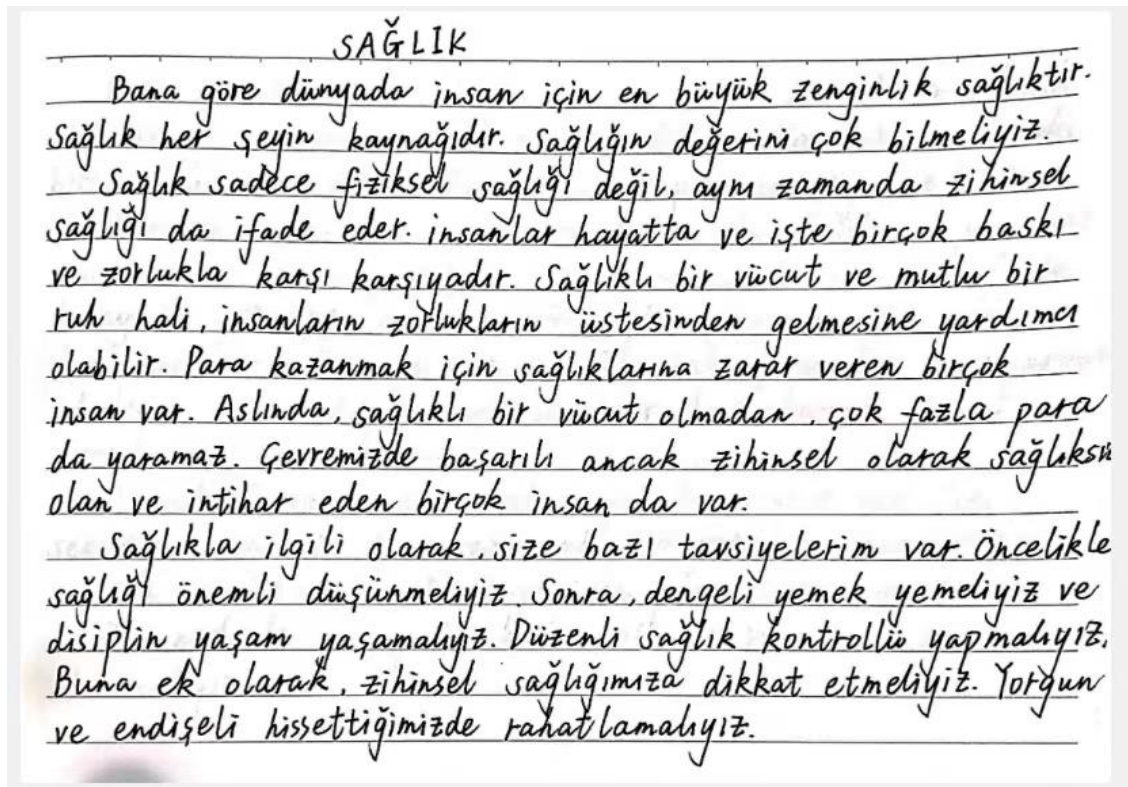 SAĞLIK
Bana göre dünyada insan için en büyük zenginlik sağlıktır.
Sağlık her şeyin kaynağıdır. Sağlığın değerini çok bilmeliyiz.
Sağlık sadece fiziksel sağlığı değil, aynı zamanda zihinsel
sağlığı da ifade eder. insanlar hayatta ve işte birçok baskı
ve zorlukla karşı karşıyadır. Sağlıklı bir vücut ve mutlu bir
ruh hali, insanların zorlukların üstesinden gelmesine yardımcı
olabilir. Para kazanmak için sağlıklarına zarar veren birçok
insan var. Aslında, sağlıklı bir vücut olmadan, çok fazla para
da yaramaz. Çevremizde başarılı ancak zihinsel olarak sağlıksız
olan ve intihar eden birçok insan da var.
Sağlıkla ilgili olarak, size bazı tavsiyelerim var. Öncelikle
sağlığı önemli düşünmeliyiz. Sonra, dengeli yemek yemeliyiz ve
disiplin yaşam yaşamalıyız. Düzenli sağlık kontrollü yapmalıyız.
Buna ek olarak, zihinsel sağlığımıza dikkat etmeliyiz. Yorgun
ve endişeli hissettiğimizde rahatlamalıyız.